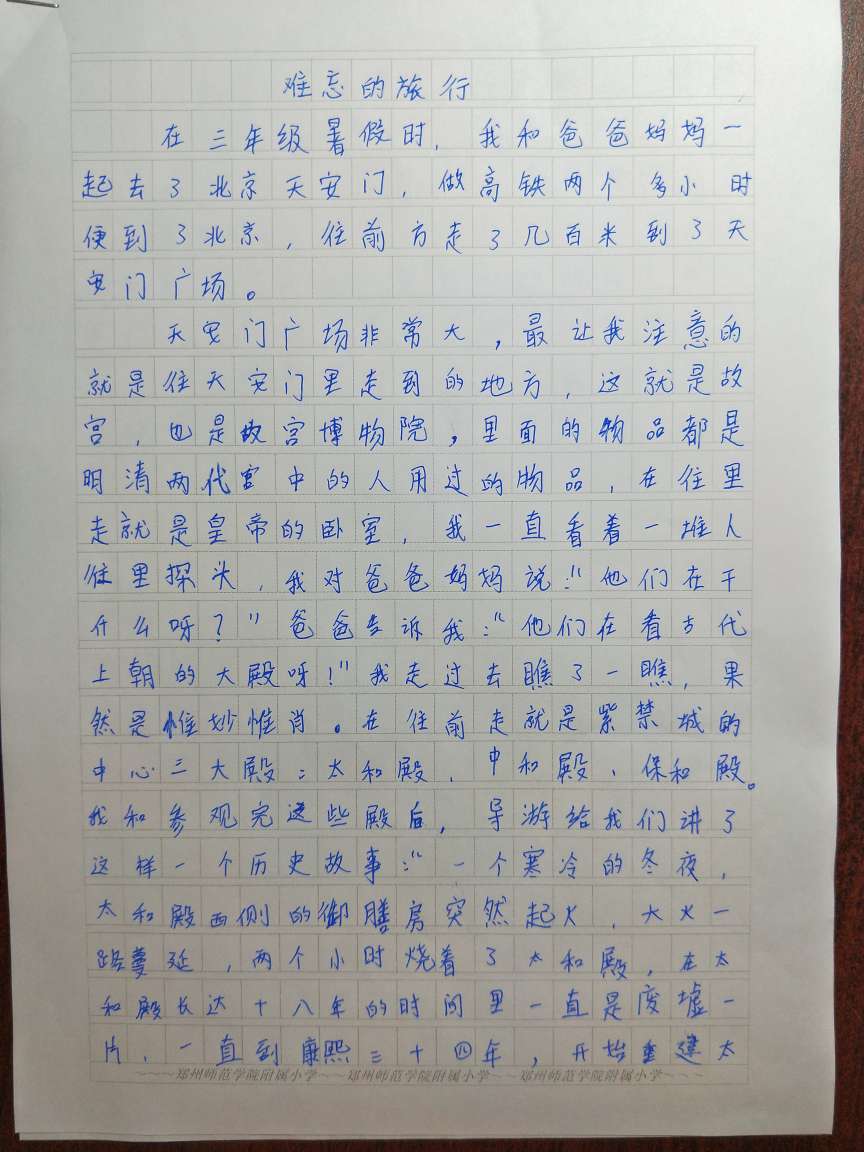 难忘的旅行
在三年级暑假时，我和爸爸妈妈一
起去了北京天安门，做高铁两个多小时
便到了北京，往前方走了几百米到了天
安门广场。
天安门广场非常大，最让我注意的
就是往天安门里走到的地方，这就是故
宫，也是故宫博物院，里面的物品都是
明清两代宫中的人用过的物品，在往里
走就是皇帝的卧室，我一直看着一堆人
往里探头，我对爸爸妈妈说：“他们在干
什么呀？”爸爸告诉我：“他们在看古代
上朝的大殿呀！”我走过去瞧了一瞧，果
然是惟妙惟肖。在往前走就是紫禁城的
中心三大殿：太和殿、中和殿、保和殿。
我和参观完这些殿后，导游给我们讲了
这样一个历史故事：“一个寒冷的冬夜，
太和殿西侧的御膳房突然起火，大火一
路蔓延，两个小时烧着了太和殿，在太
和殿长达十八年的时间里一直是废墟一
片，一直到康熙三十四年，开始重建太
~~~郑州师范学院附属小学~~~郑州师范学院附属小学~~~郑州师范学院附属小学~~~